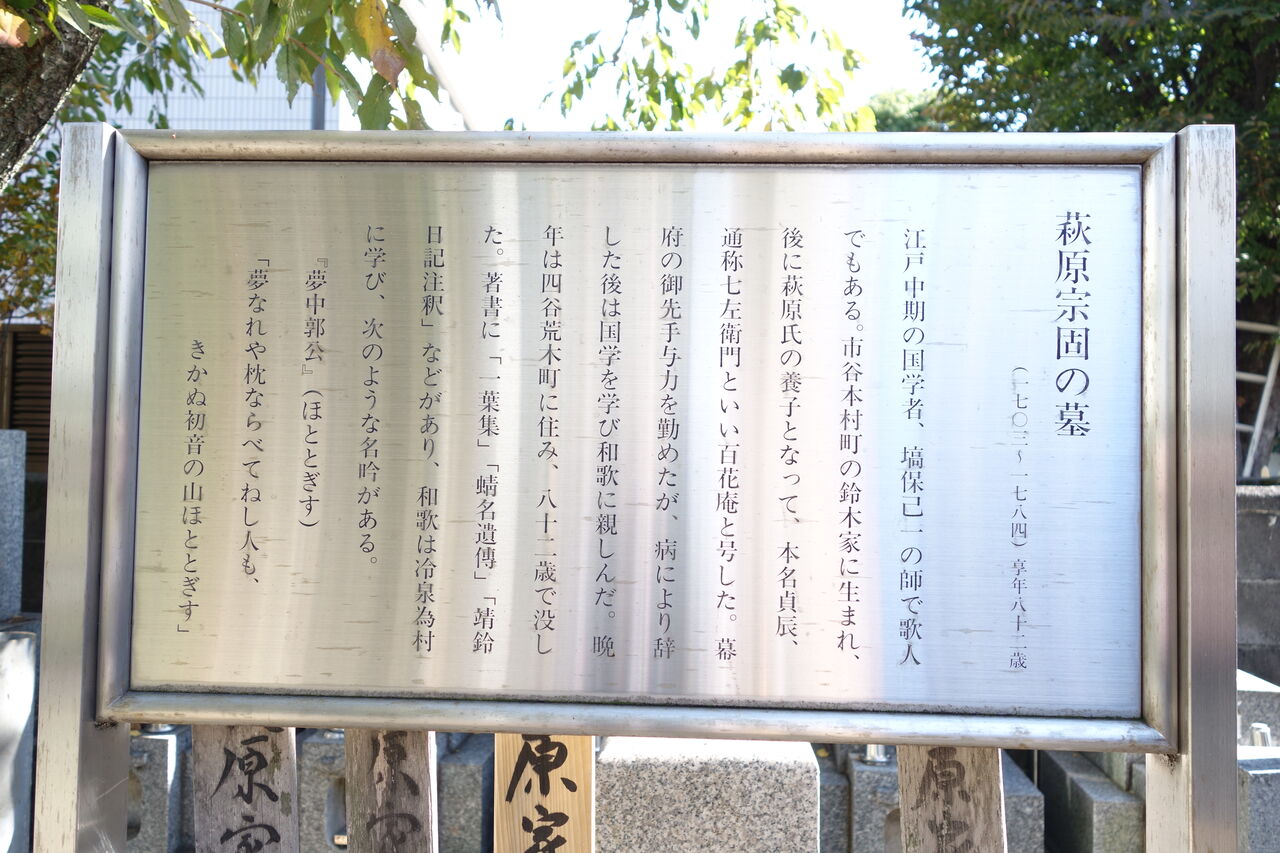 萩原宗固の墓
(一七〇三〜一七八四)享年八十二歳
江戸中期の国学者、塙保己一の師で歌人
でもある。市谷本村町の鈴木家に生まれ、
後に萩原氏の養子となって、本名貞辰、
通称七左衛門といい百花庵と号した。幕
府の御先手与力を勤めたが、病により辞
した後は国学を学び和歌に親しんだ。晩
年は四谷荒木町に住み、八十二歳で没し
た。著書に「一葉集」「蜻名遺傳」「靖鈴
日記注釈」などがあり、和歌は冷泉為村
に学び、次のような名吟がある。
『夢中郭公』(ほととぎす)
「夢なれや枕ならべてねし人も、
きかぬ初音の山ほととぎす」
原家
原家
原家
原家